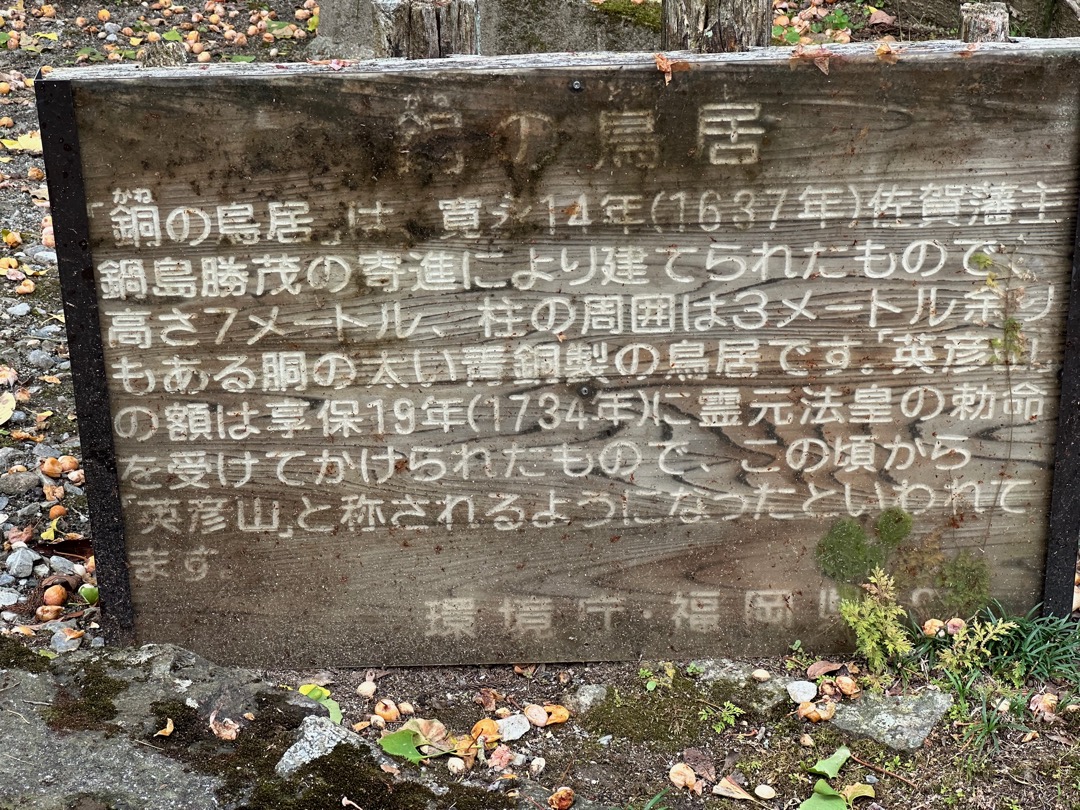 銅の鳥居
かね
「銅の鳥居」は 寛永14年(1637年)佐賀藩主
鍋島勝茂の寄進により建てられたもので、
高さ7メートル、柱の周囲は3メートル余り
もある胴の太い青銅製の鳥居です。「英彦山」
の額は享保19年(1734年)に霊元法皇の勅命
を受けてかけられたもので、この頃から
「英彦山」と称されるようになったといわれて
ます。
環境庁・福岡